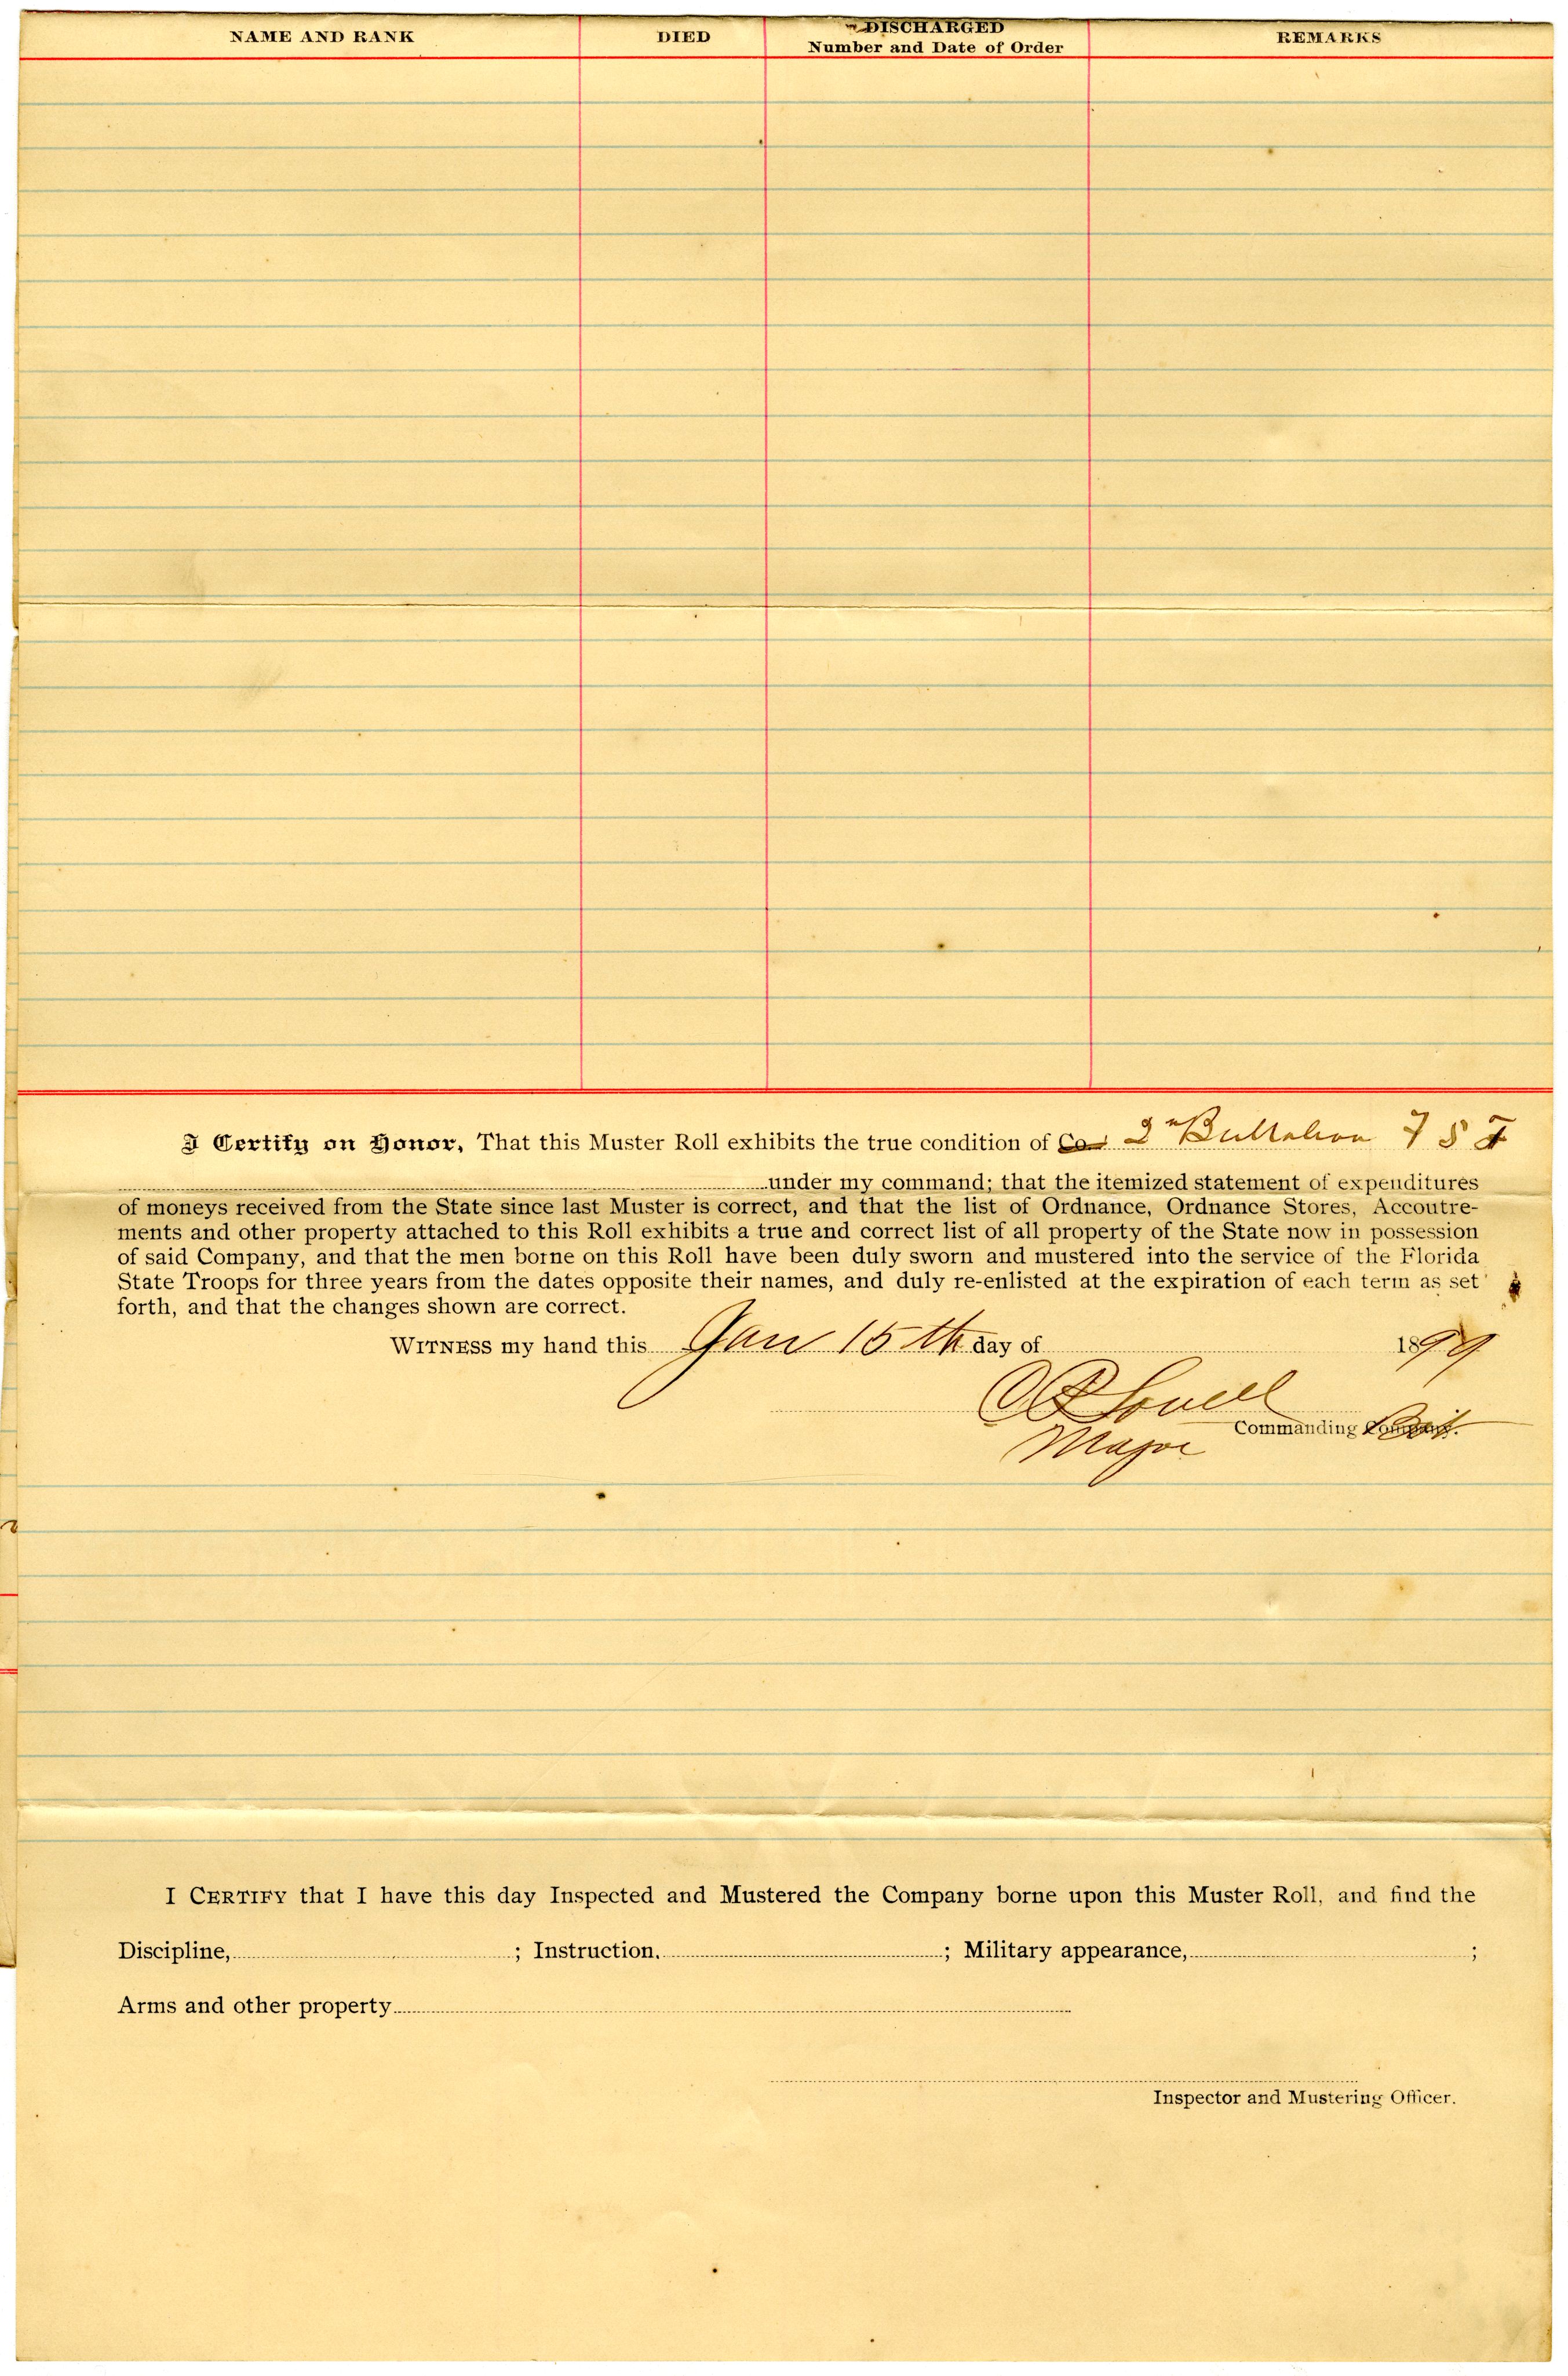 NAME AND RANK DIED DISCHARGED Number and Date of Order REMARKS
I Certify on Honor, That this Muster Roll exhibits the true condition of Co. 2n Battalion F S T
under my command; that the itemized statement of expenditures
of moneys received from the State since last Muster is correct, and that the list of Ordnance, Ordnance Stores, Accoutre-
ments and other property attached to this Roll exhibits a true and correct list of all property of the State now in possession
of said Company, and that the men borne on this Roll have been duly sworn and mustered into the service of the Florida
State Troops for three years from the dates opposite their names, and duly re-enlisted at the expiration of each term as set
forth, and that the changes shown are correct.
WITNESS my hand this Jan 15th day of 1899
C R Lovell
Major Commanding Company. Bat.
I CERTIFY that I have this day Inspected and Mustered the Company borne upon this Muster Roll, and find the
Discipline, ; Instruction, ; Military appearance, ;
Arms and other property
Inspector and Mustering Officer.